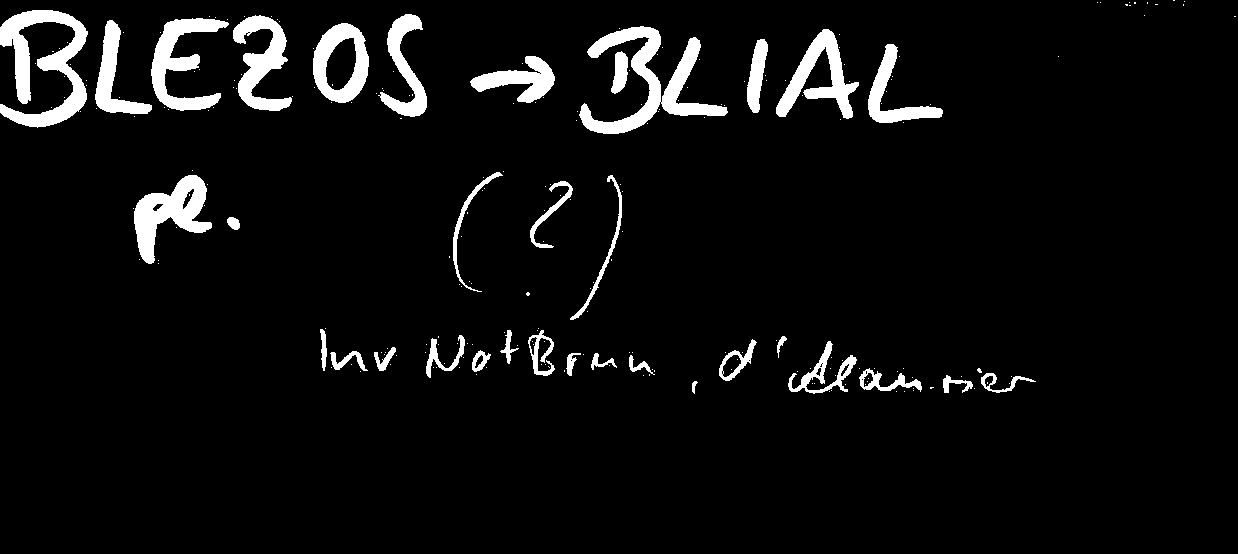 BLEZOS → BLIAL
pl.
(?)
Inv Not Brun, d'Alauzier